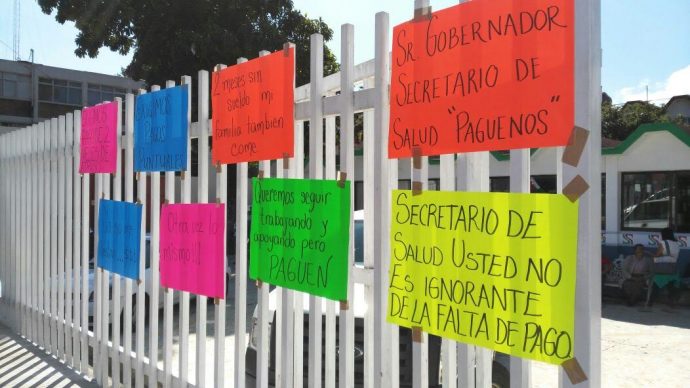 2 meses sin
sueldo mi
familia tambien
come
SR. GOBERNADOR
SECRETARIO DE
SALUD "PAGUENOS"
EXIGIMOS
PAGOS
PUNTUALES
Otra vez lo
mismo!!!
Queremos seguir
trabajando y
apoyando pero
PAGUEN
SECRETARIO DE
SALUD USTED NO
ES IGNORANTE
DE LA FALTA DE PAGO